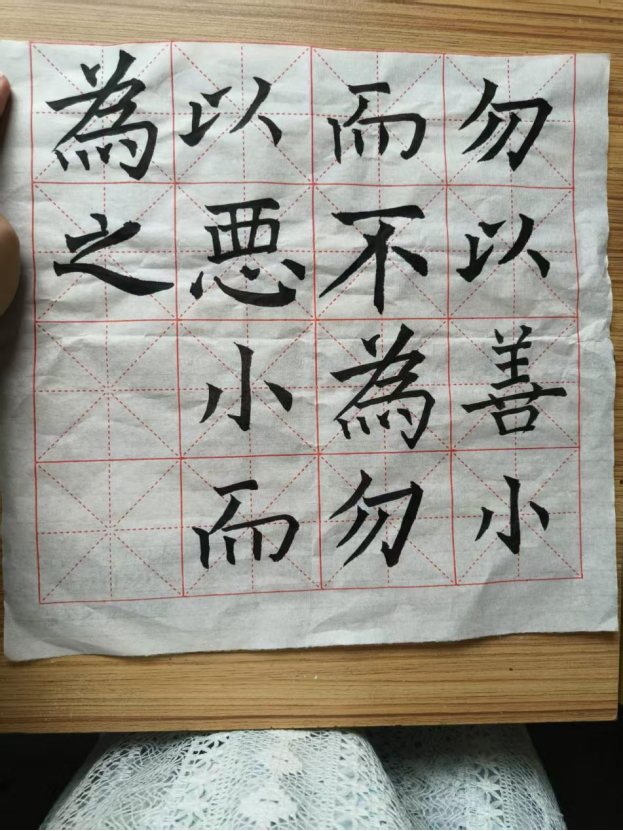 勿以善小
而不為勿
以悪小而
為之